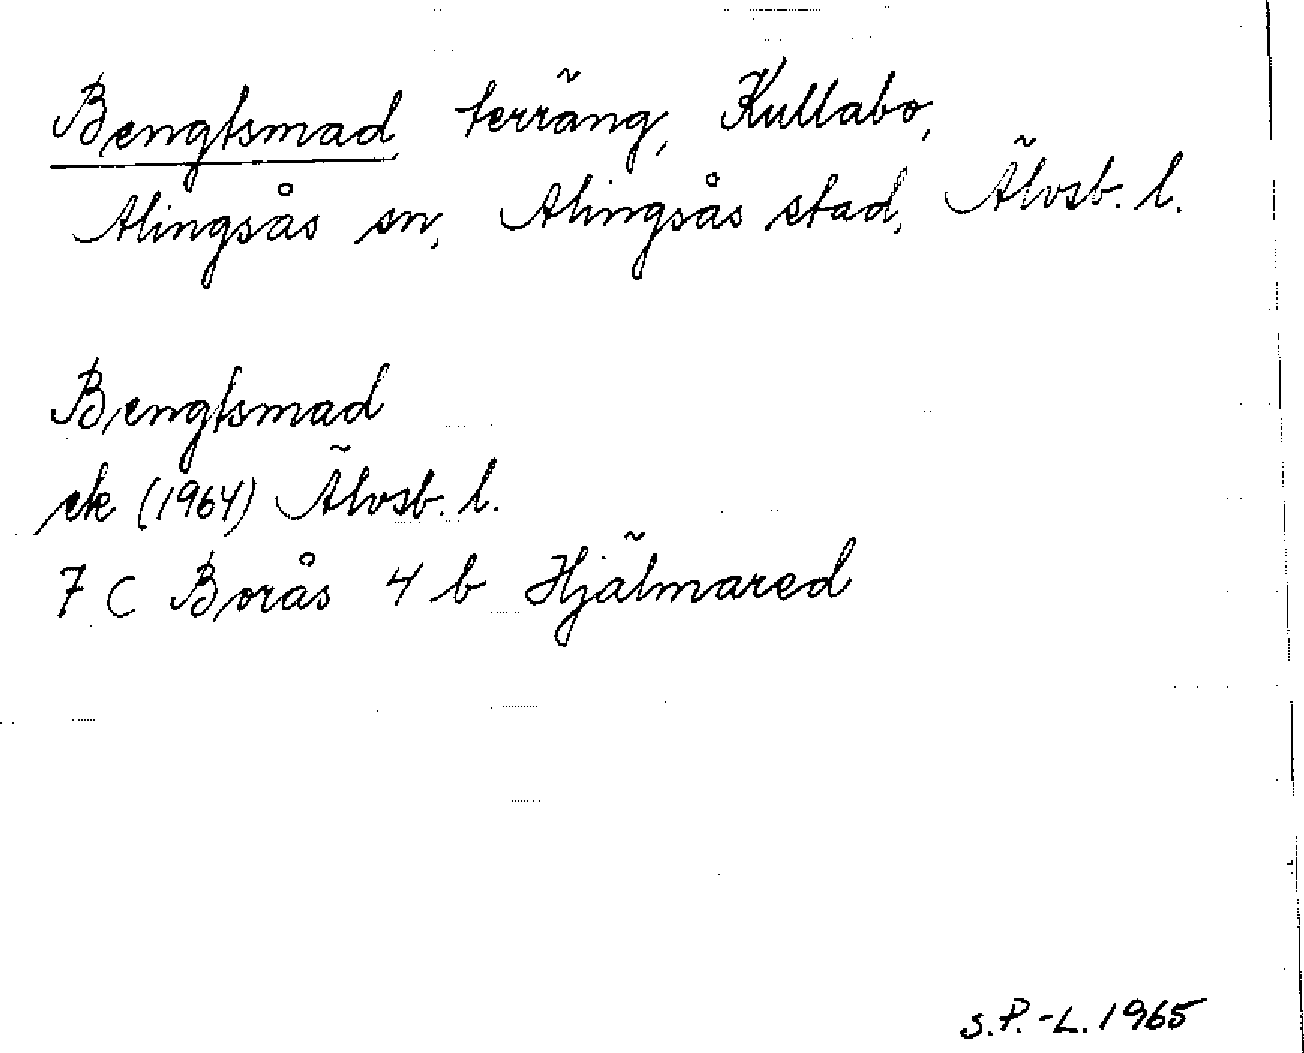 Bengtsmad terräng, Kullabo,
Alingsås sn, Alingsås stad, Älvsb. l.
Bengtsmad
ek (1964) Älvsb. l.
7 C Borås 4 b Hjälmared
S.P.-L. 1965